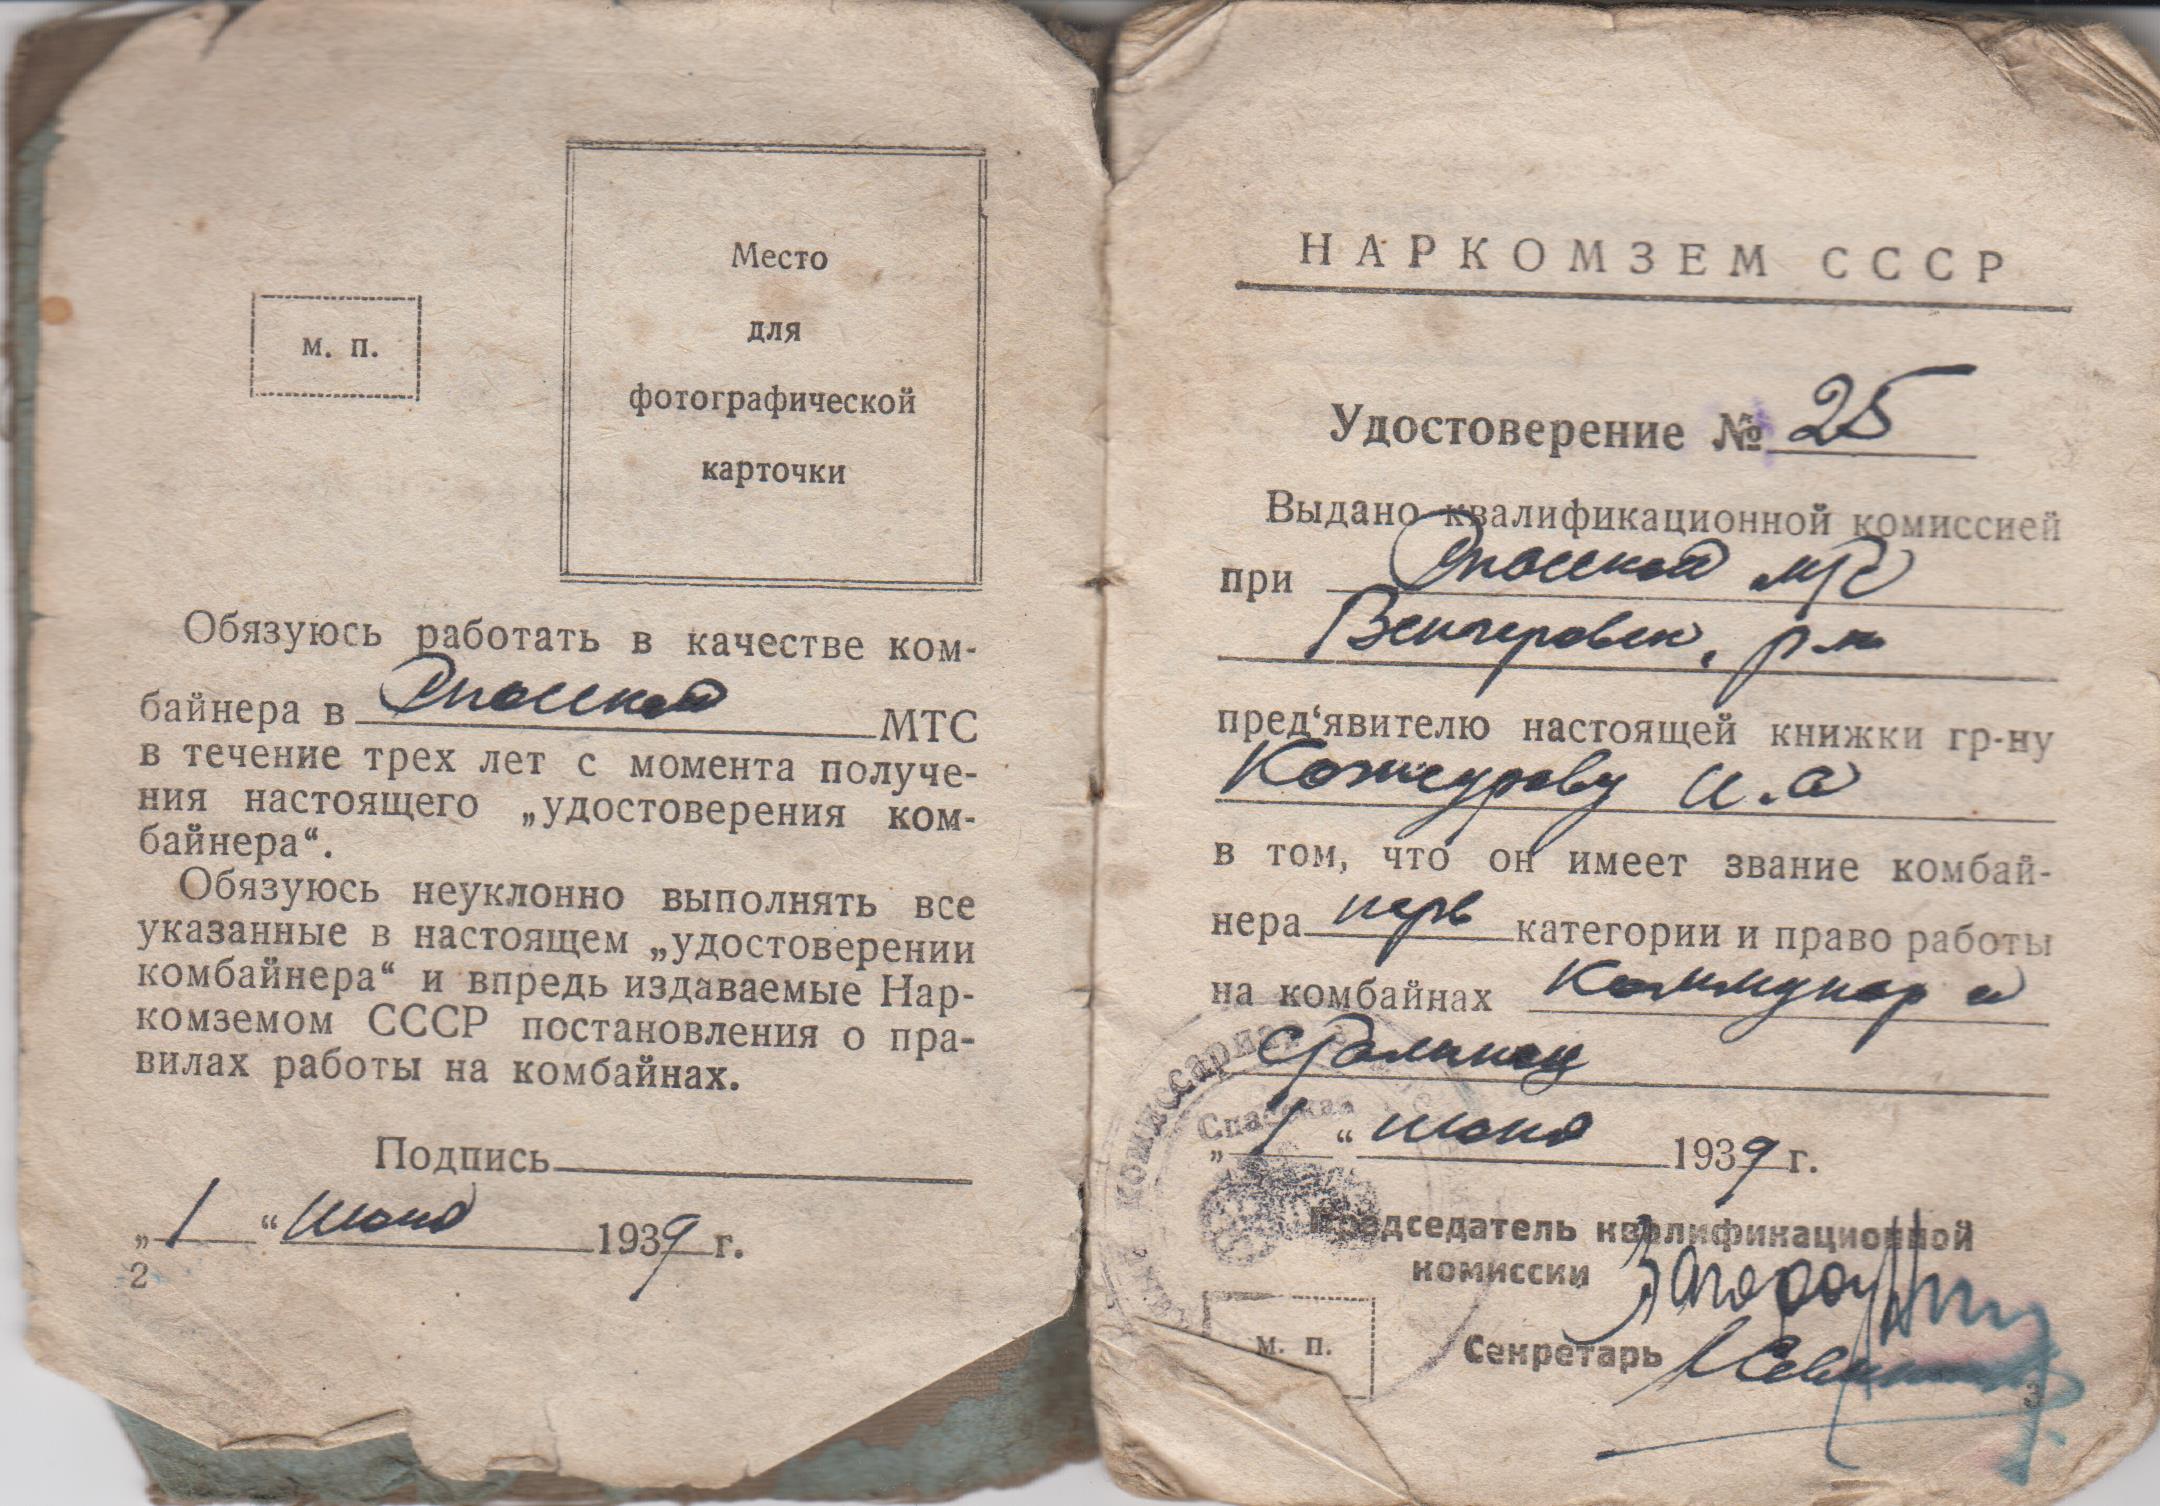 Место
для
фотографической
карточки
м. п.
Обязуюсь работать в качестве ком-
байнера в Спасской МТС
в течение трех лет с момента получе-
ния настоящего „удостоверения ком-
байнера“.
Обязуюсь неуклонно выполнять все
указанные в настоящем „удостоверении
комбайнера“ и впредь издаваемые Нар-
комземом СССР постановления о пра-
вилах работы на комбайнах.
Подпись
„1“ июня 1939 г.
2
НАРКОМЗЕМ СССР
Удостоверение № 25
Выдано квалификационной комиссией
при Спасской МТС
Венгеровск. р-на
пред‘явителю настоящей книжки гр-ну
Кожеурову И. А
в том, что он имеет звание комбай-
нера перв категории и право работы
на комбайнах Коммунар и
Сталинец
Спасская
„1“ июня 1939 г.
Председатель квалификационной
комиссии
Секретарь
м. п.
3